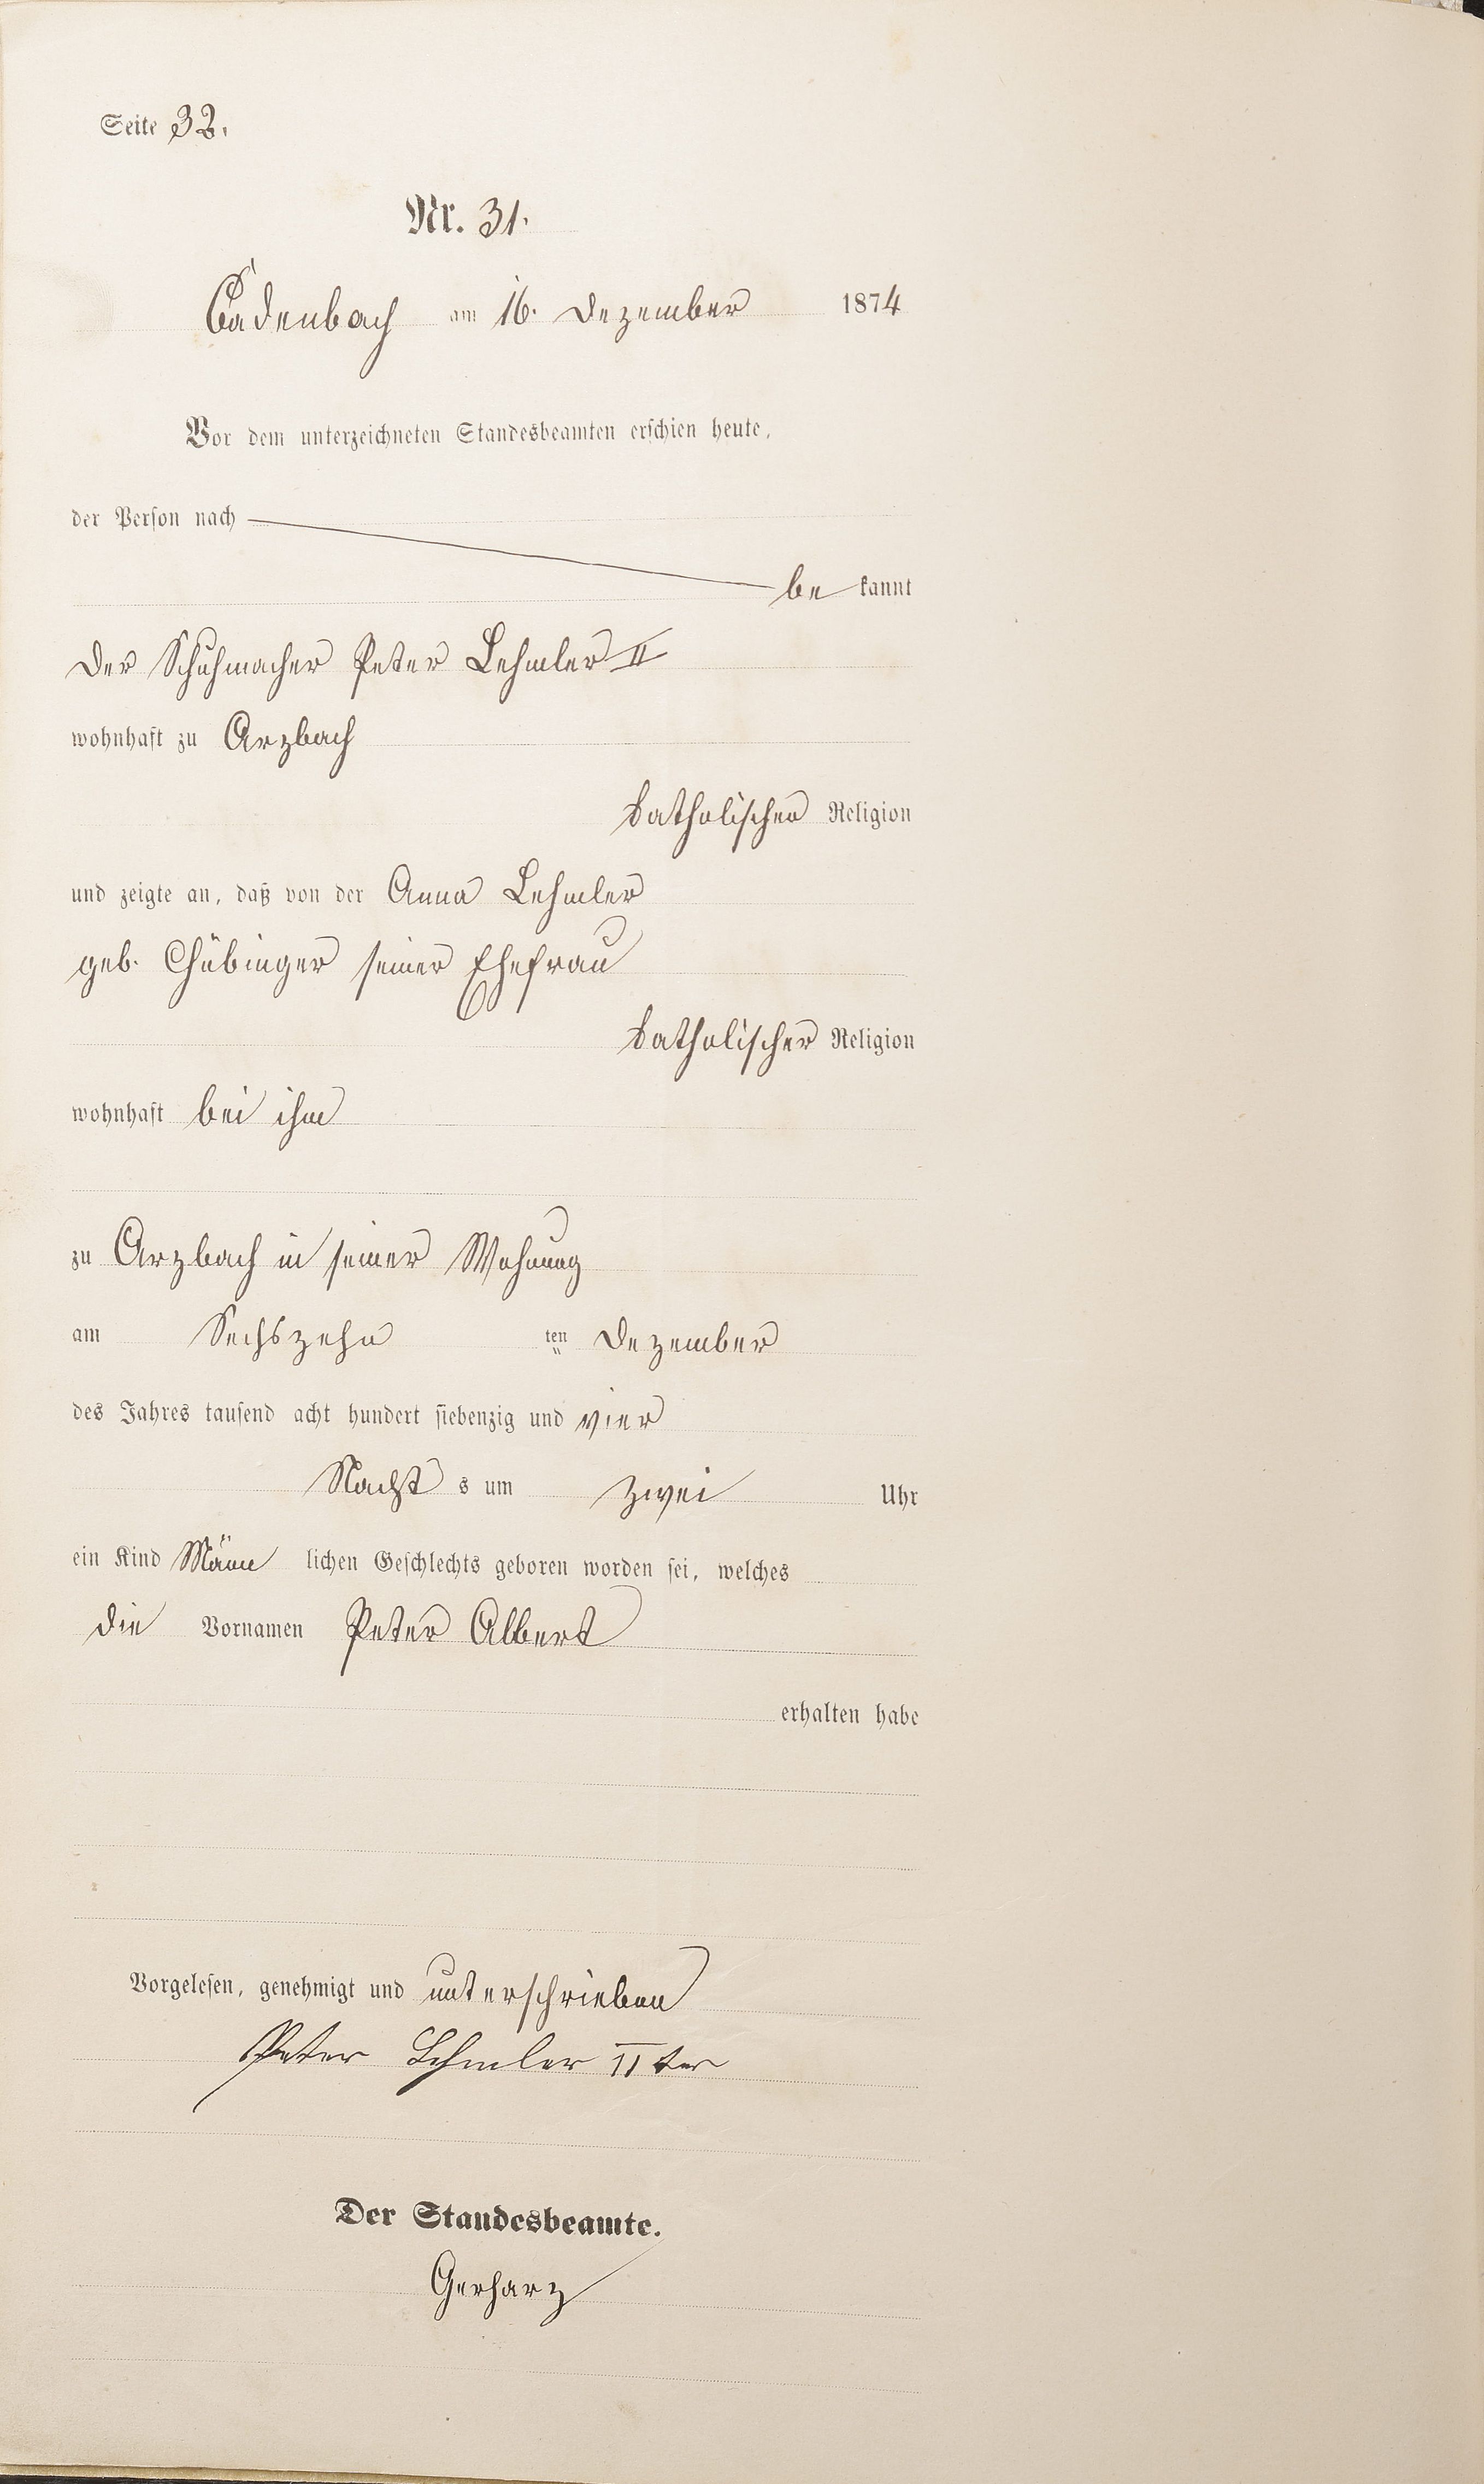 Seite 32.
Nr. 31.
Cadenbach am 16. Dezember 1874
Vor dem unterzeichneten Standesbeamten erschien heute,
der Person nach
be kannt
Der Schuhmacher Peter Lehmler II
wohnhaft zu Arzbach
katholischer Religion
und zeigte an, daß von der Anna Lehmler
geb. seiner Ehefrau
katholischer Religion
wohnhaft bei ihm
zu Arzbach in seiner Wohnung
am Sechszehn ten Dezember
des Jahres tausend acht hundert siebenzig und vier
Nacht s um zwei Uhr
ein Kind Männ lichen Geschlechts geboren worden sei, welches
die Vornamen Peter Albert
erhalten habe
Vorgelesen, genehmigt und unterschrieben
Peter Lehmler II ter
Der Standesbeamte.
Gerharz